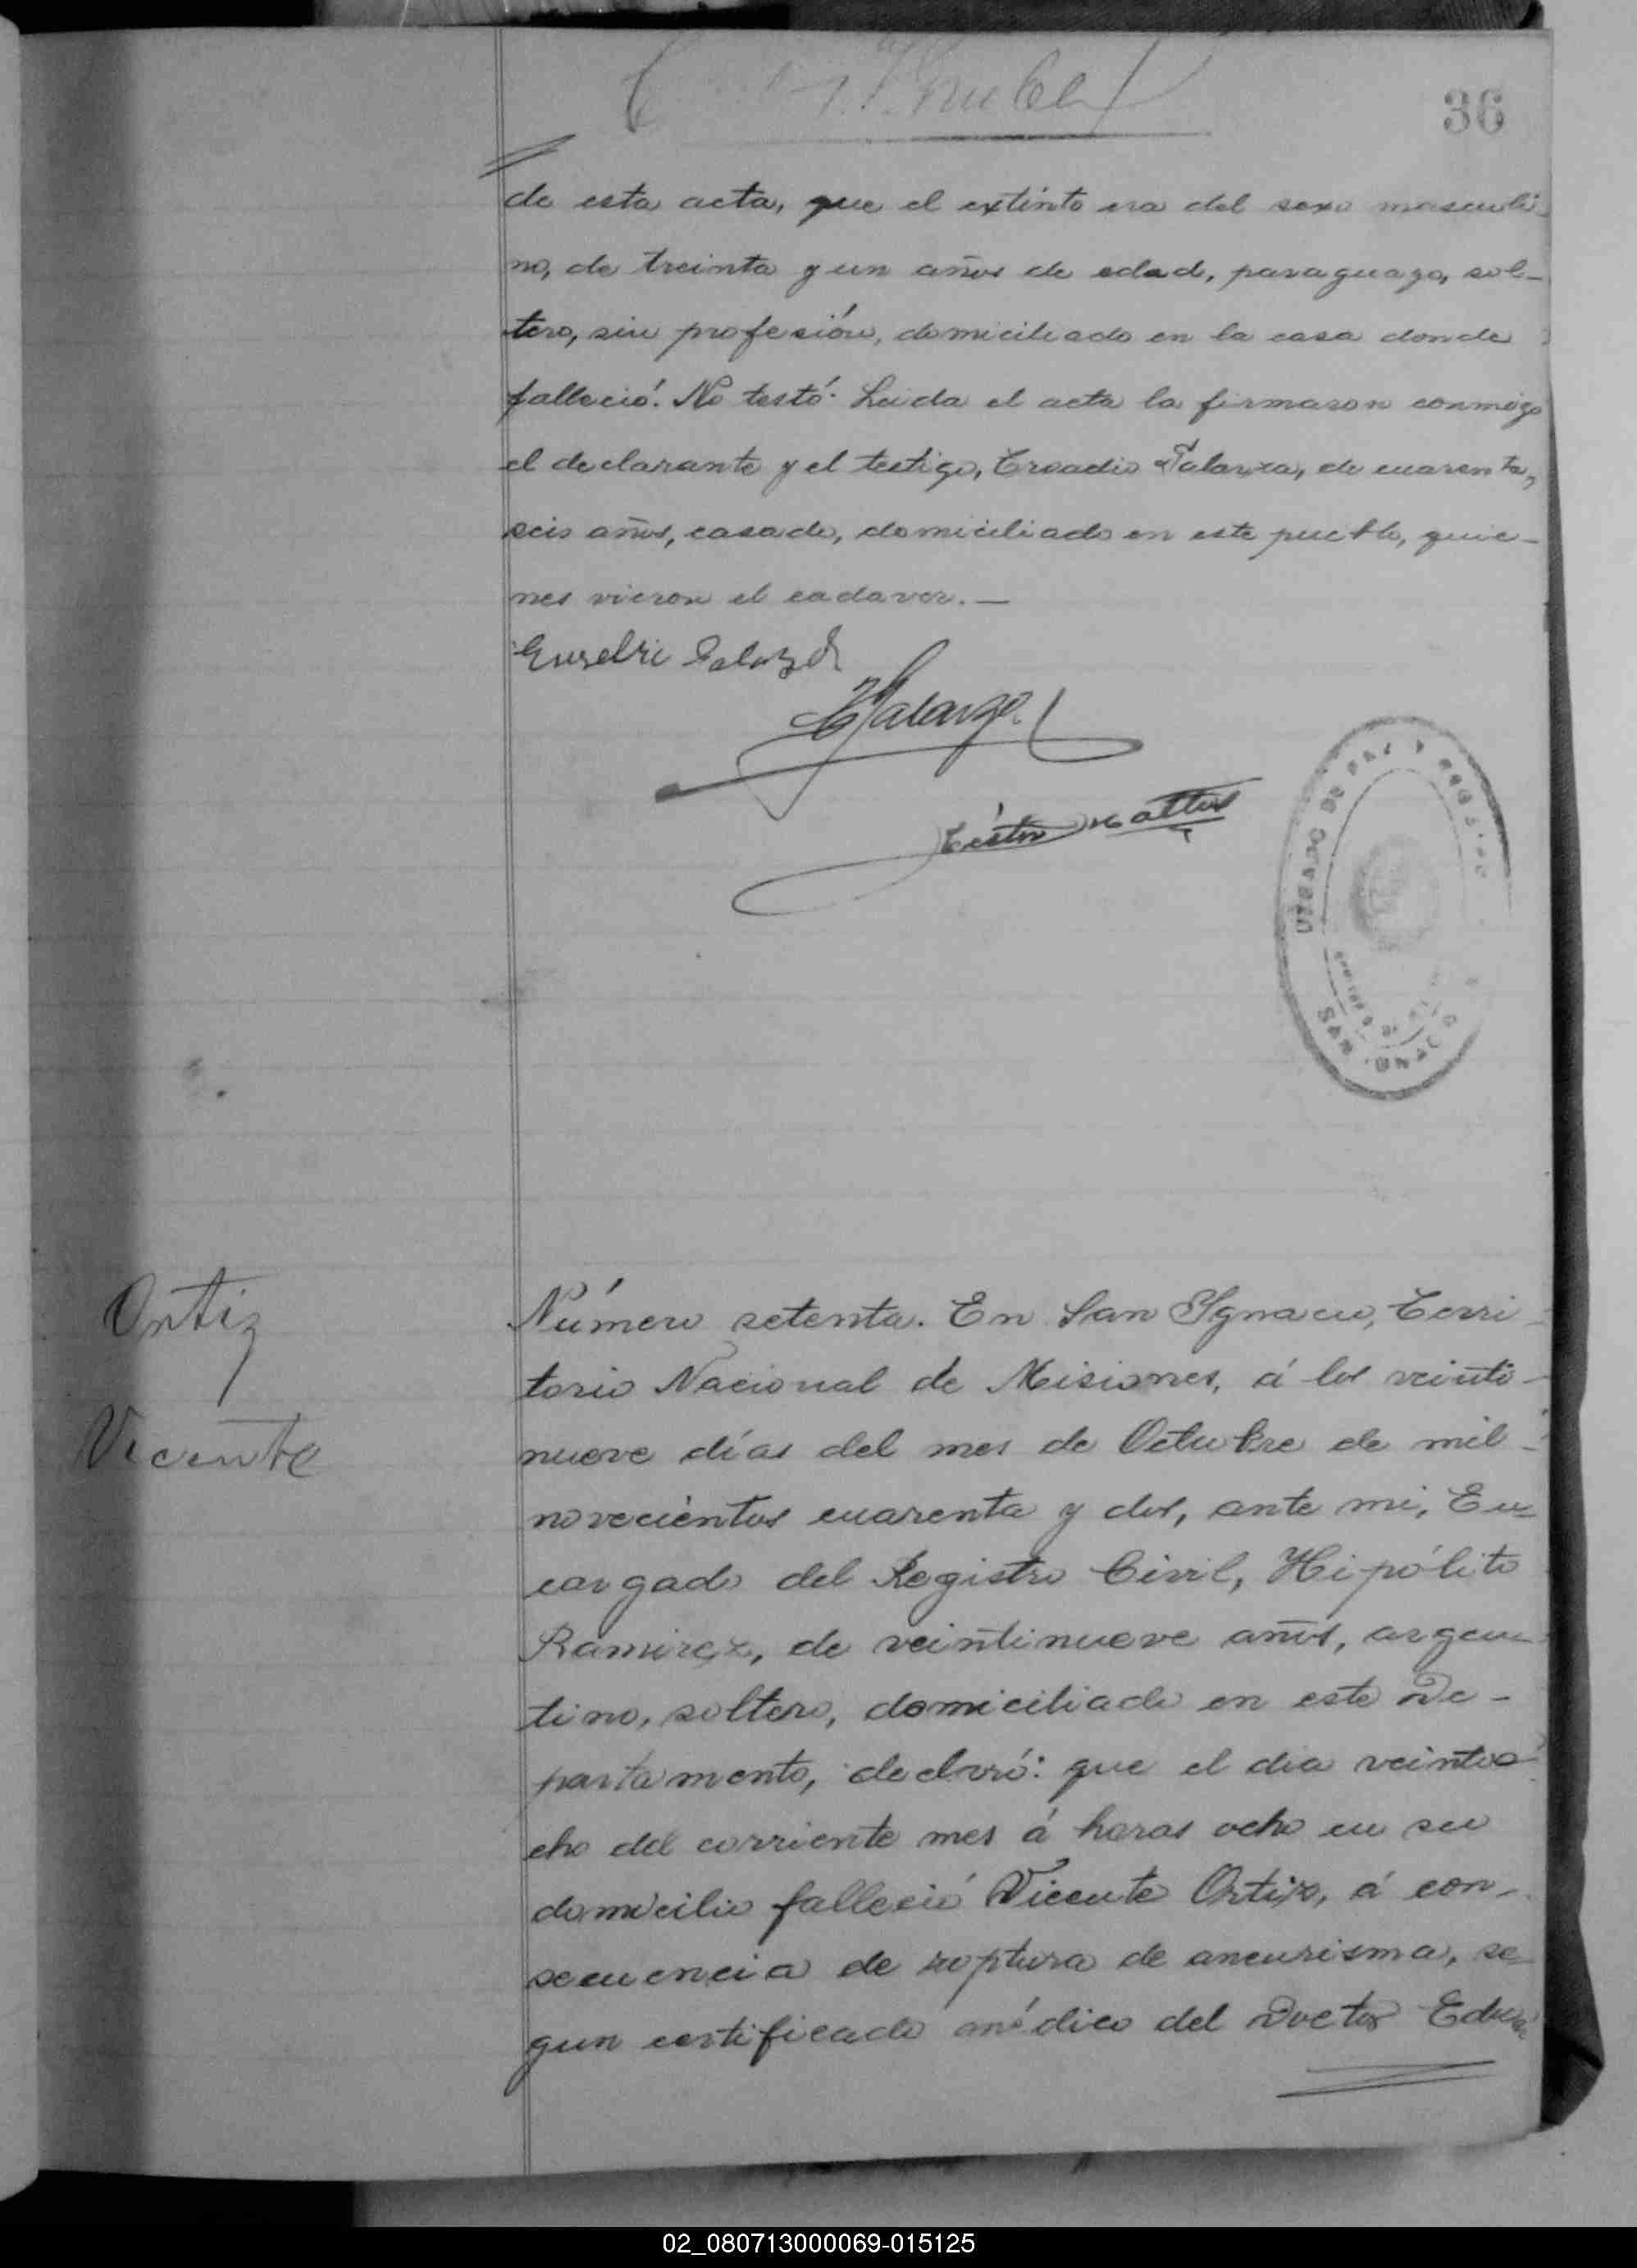 36
de esta acta, que el extinto era del sexo masculi-
no, de treinta y un años de edad, paraguayo, sol-
tero, sin profesión, domiciliado en la casa donde
falleció. No testó. Leida el acta la firmaron conmigo
el declarante y el testigo, Croadio Galarza, de cuarenta y
seis años, casado, domiciliado en este pueblo, quie-
nes vieron el cadaver.—
Galarza
Néstor Mattos
Ortiz
Vicente
Número setenta. En San Ygnacio, Terri-
torio Nacional de Misiones, á los veinti-
nueve días del mes de Octubre de mil
novecientos cuarenta y dos, ante mi, En-
cargado del Registro Civil, Hipólito
Ramirez, de veintinueve años, argen-
tino, soltero, domiciliado en este De-
partamento, declaró: que el dia veintio-
cho del corriente mes á horas ocho en su
domicilio falleció Vicente Ortiz, á con-
secuencia de ruptura de aneurisma, se-
gun certificado médico del Doctor
02_080713000069-015125